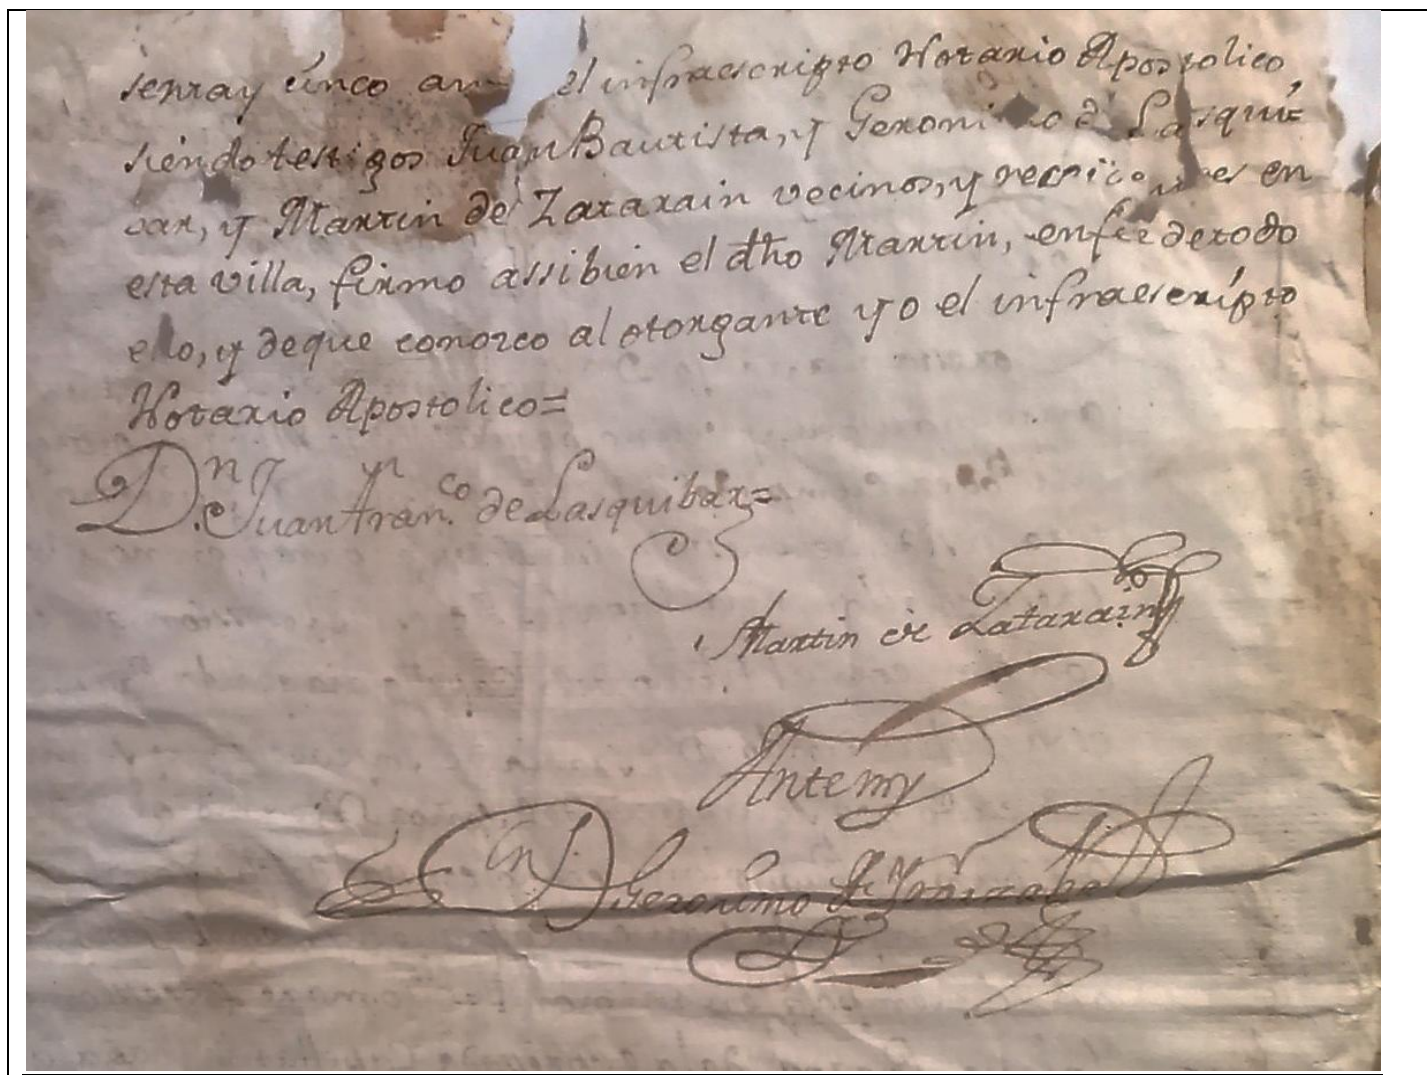 senta y cinco an el infraescripto Notario Apostolico,
siendo testigos Juan Bautista, y Geronimo de Lasqui=
bar, y Martin de Zatarain vecinos, y en
esta villa, firmo assibien el dho Martin, enfee de todo
ello, y deque conozco al otorgante yo el infraescripto
Notario Apostolico=
Dn. Juan Fran.co de Lasquibar=
Martin de Zatarain
Antemy
Dn Geronimo de